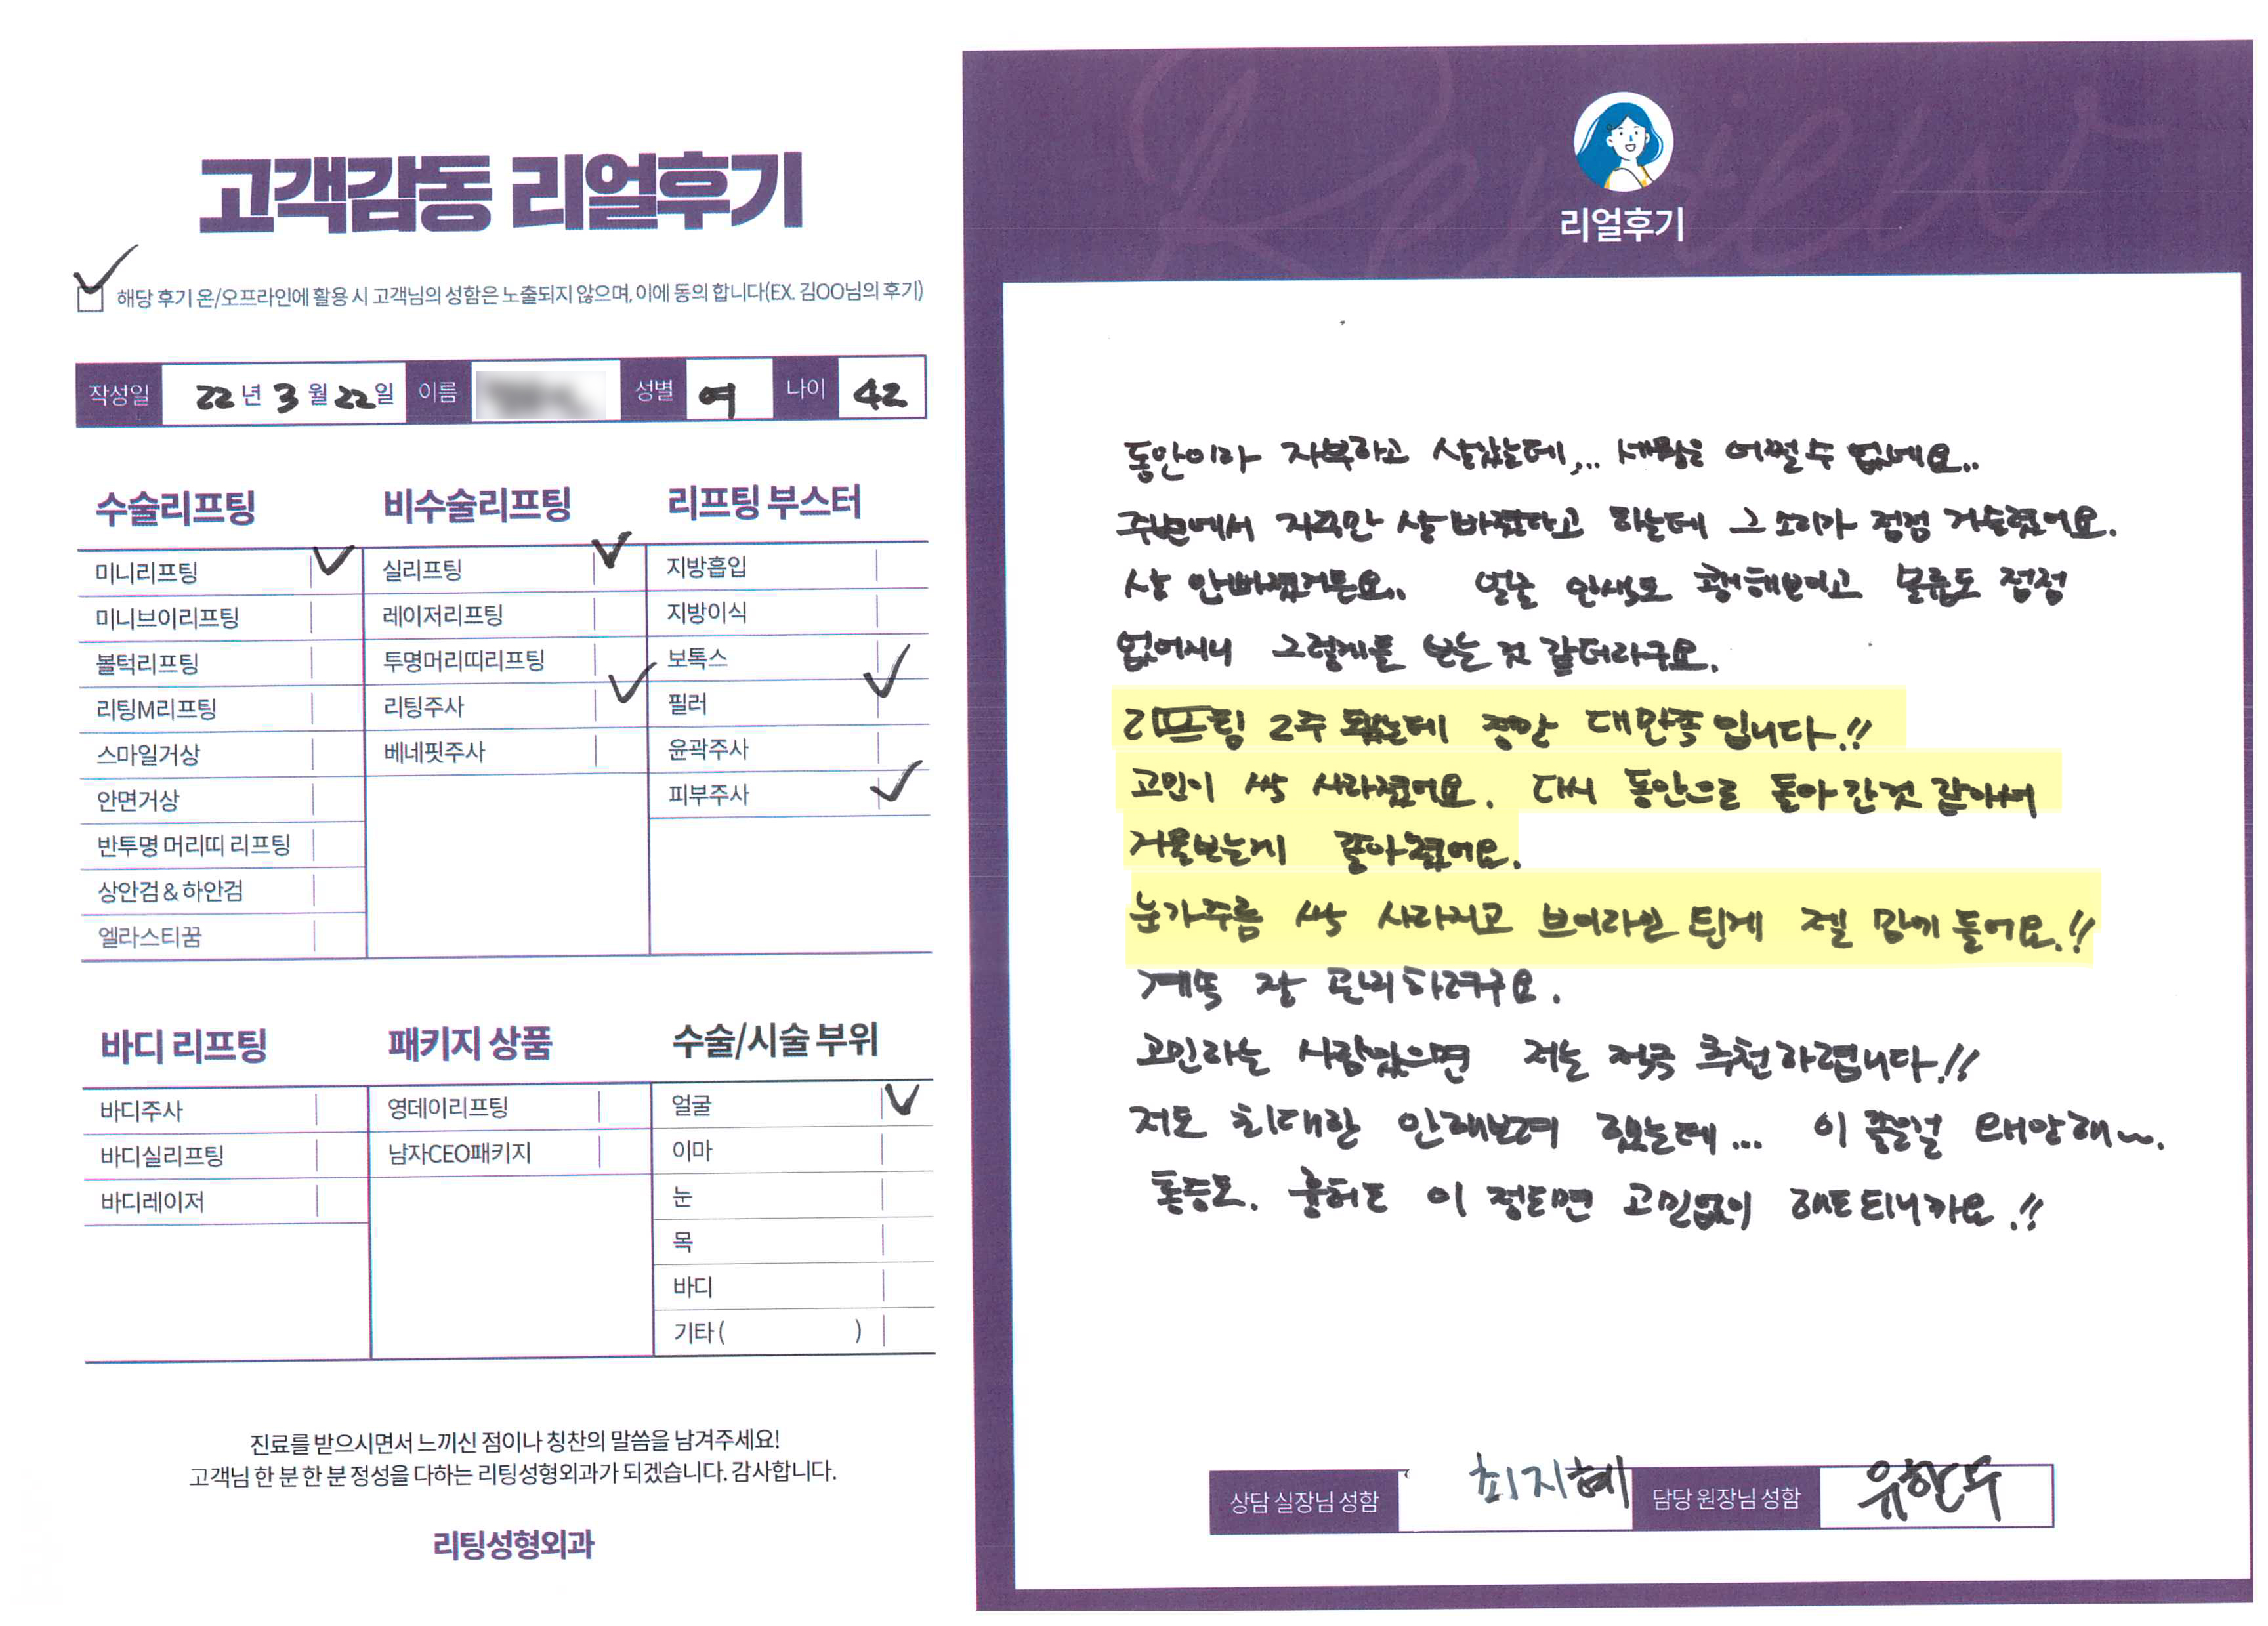 고객감동 리얼후기
해당 후기 온/오프라인에 활용 시 고객님의 성함은 노출되지 않으며, 이에 동의 합니다(EX. 김OO님의 후기)
작성일 22년 3월 22일 이름 성별 여 나이 42
수술리프팅
미니리프팅
미니브이리프팅
볼턱리프팅
리팅M리프팅
스마일거상
안면거상
반투명 머리띠 리프팅
상안검 & 하안검
엘라스티꿈
비수술리프팅
실리프팅
레이저리프팅
투명머리띠리프팅
리팅주사
베네핏주사
리프팅 부스터
지방흡입
지방이식
보톡스
필러
윤곽주사
피부주사
바디 리프팅
바디주사
바디실리프팅
바디레이저
패키지 상품
영데이리프팅
남자CEO패키지
수술/시술 부위
얼굴
이마
눈
목
바디
기타 ( )
진료를 받으시면서 느끼신 점이나 칭찬의 말씀을 남겨주세요!
고객님 한 분 한 분 정성을 다하는 리팅성형외과가 되겠습니다. 감사합니다.
리팅성형외과
Review
리얼후기
동안이라 자부하고 살았는데,... 세월은 어쩔수 없네요..
주변에서 자꾸만 살 빠졌다고 하는데 그 소리가 점점 거슬렸어요.
살 안빠졌거든요.. 얼굴 안색도 퀭해보이고 볼륨도 점점
없어지니 그렇게들 보는 것 같더라구요.
리프팅 2주 됐는데 정말 대만족입니다!!
고민이 싹 사라졌어요. 다시 동안으로 돌아간것 같아서
거울보는게 좋아졌어요.
눈가주름 싹 사라지고 브이라인 된게 젤 맘에 들어요.!!
계속 잘 관리하려구요.
고민하는 사람있으면 저는 적극 추천하렵니다!!
저도 최대한 안해보려 했는데... 이 좋은걸 왜안해~.
통증도. 흉터도 이 정도면 고민없이 해도 되니까요.!!
상담 실장님 성함 최지혜 담당 원장님 성함 유한두